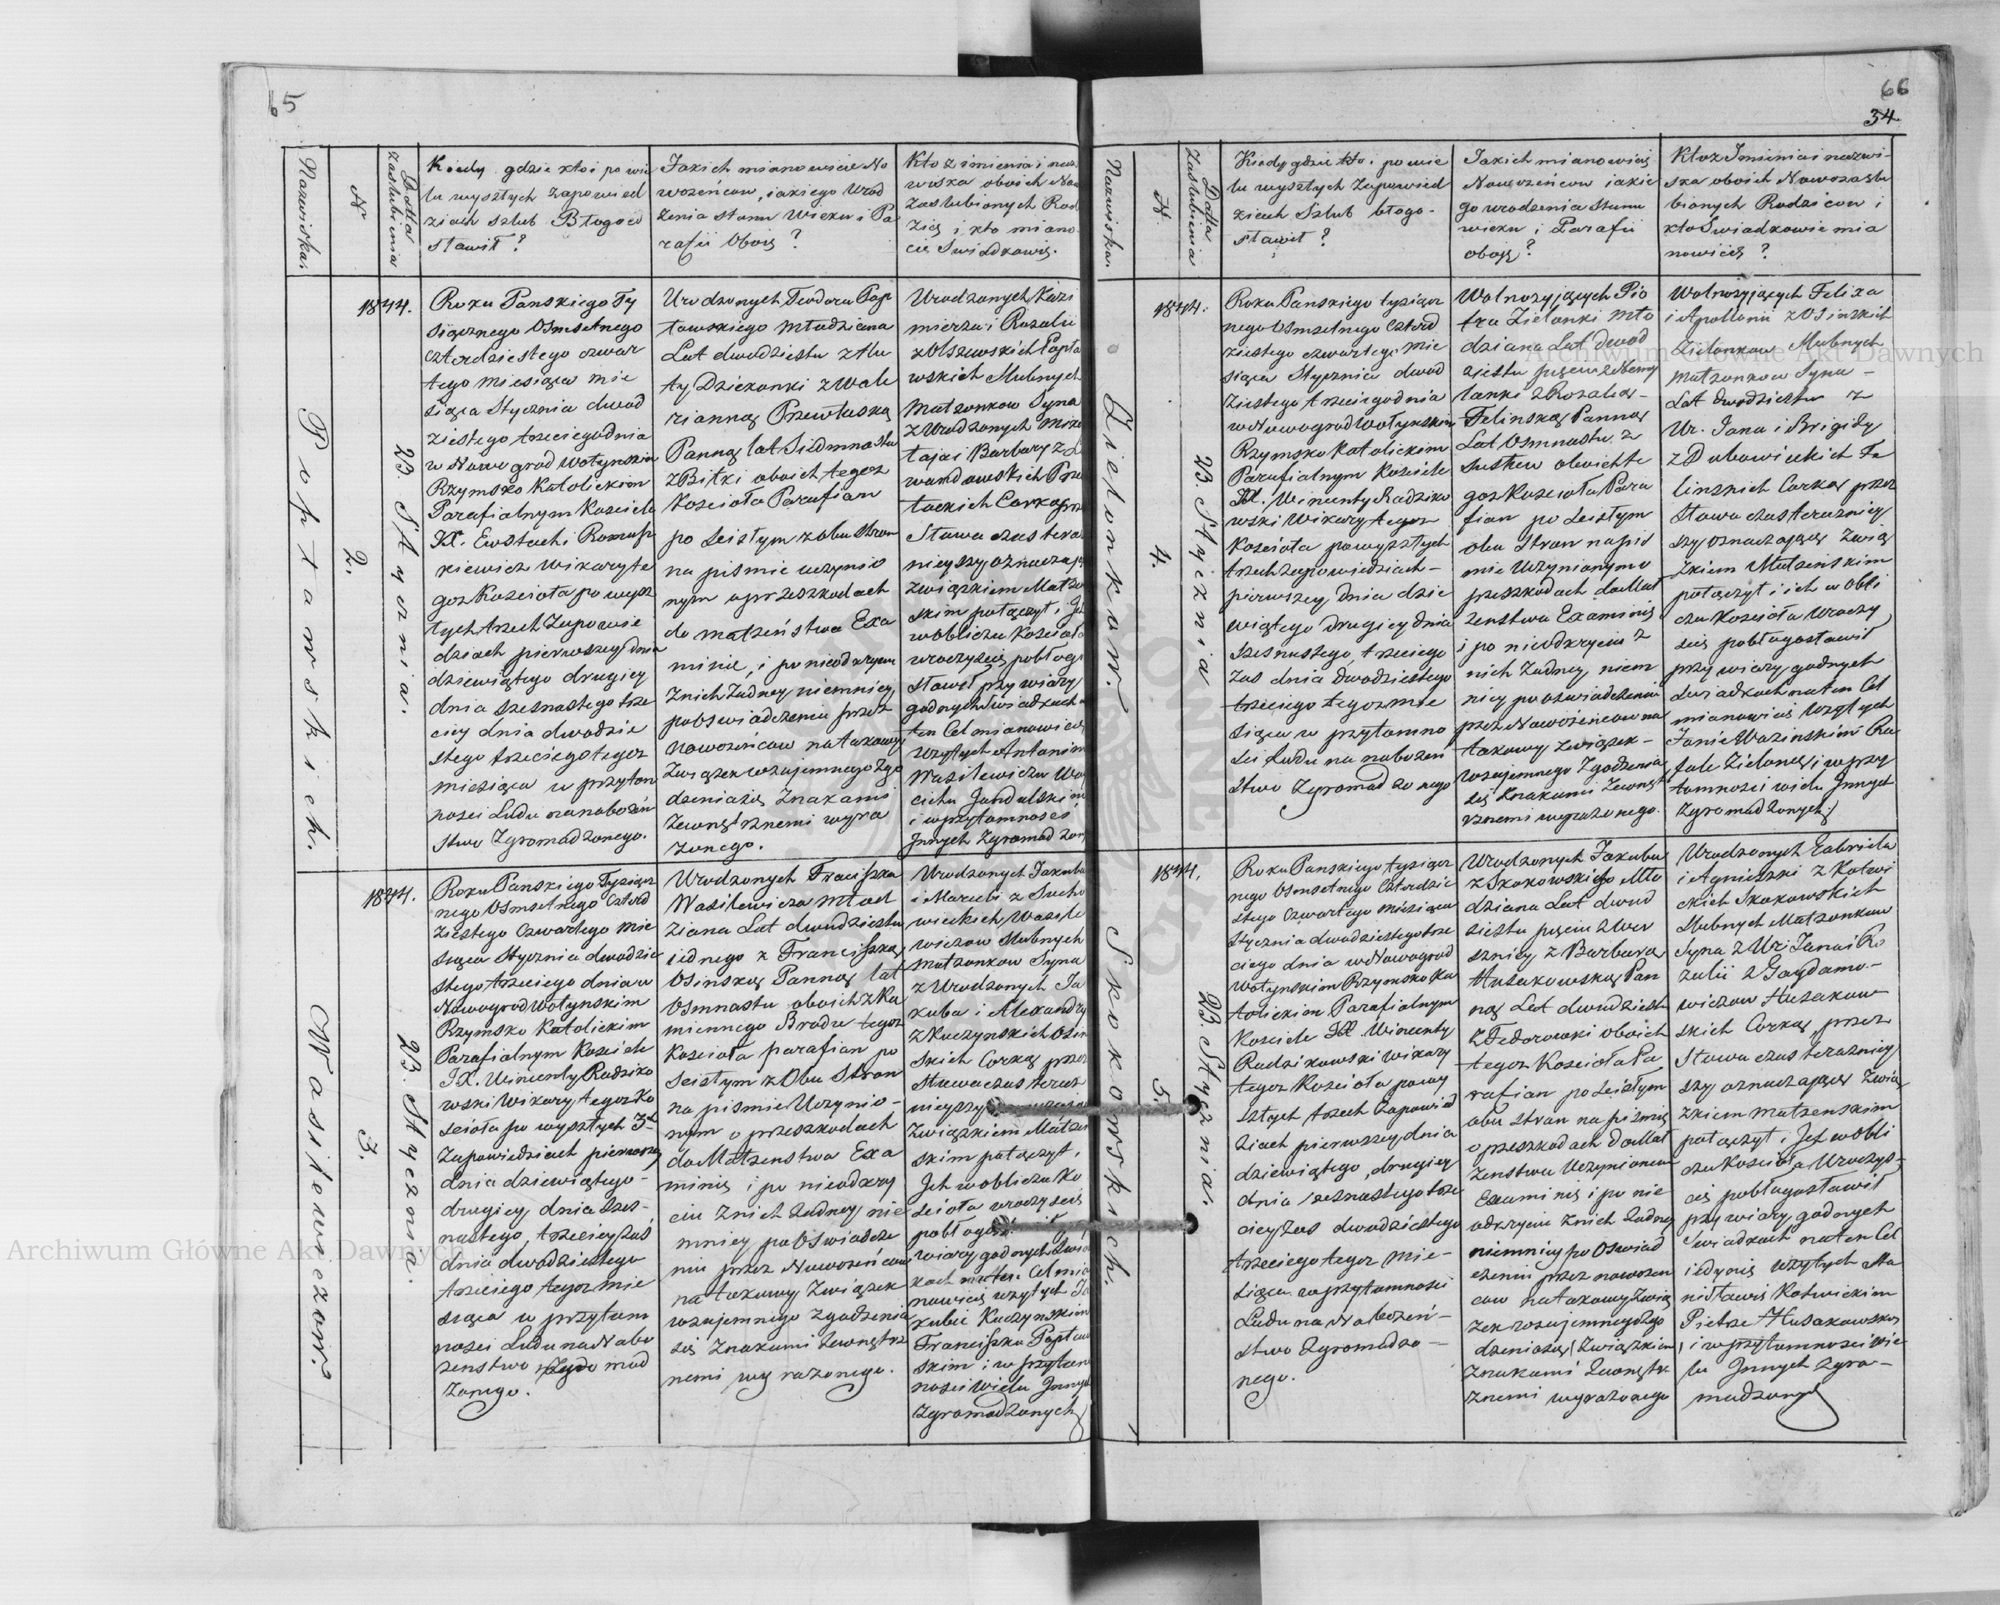 65
Nazwiska.
N
Datta zaslubienia
Kiedy gdzie kto i po wie
lu wyszłych zapowied
ziach szlub Błogosł
sławił?
Jakich mianowicie No
wozeńcow, iakiego Urod
zenia stanu wieku i Pa
rafii Oboię?
Kto z imienia i naz
wiska oboich Now
Zaslubionych Rod
Zicę i kto miano
cie Swiadkowię.
Popławskich.
2.
1844.
23. Stycznia.
Roku Panskiego Ty
siącznego Osmsetnego
czterdziestego czwar
tego miesiąca mie
siąca Stycznia dwod
ziestego trzeciego dnia
w Nowogrod Wołynskim
Rzymsko Katolickim
Parafialnym Kosciele
JX. Ewstachi Romasz
kiewicz Wikary te
goz Kosciola po wysz
łych trzech Zapowie
dziach pierwszey dnia
dziewiątego drugiey
dnia szesnastego trze
ciey dnia dwodzie
stego trzeciego tegoz
miesiąca w przytom
nosci Ludu na naboźeń
stwo Zgromadzonego.
Urodzonych Teodora Pop
ławskiego Młodziana
Lat dwodziestu z Hu
ty Dzieżanki z Wale
ryanną Przewłuską
Panną lat Siedmnastu
z Bitki oboich tegoz
Kosciola Parafian
po scisłym z obu stron
na pismie uczynio
nym o przeszkodach
do matzeństwa Exa
minie, i po nieodkryciu
Znich Zadney niemniey
po Oswiadczeniu przez
nowozeńcow na takowy
Związek wzajemnego Zgo
dzenia się Znakami
Zewnętrznemi wyra
zonego.
Urodzonych Kazi
mierza i Rozalii
z Olszewskich Popła
wskich Slubnych
Matzonkow Syna
z Urodzonych Miko
łaja i Barbary z L
wandowskich Prze
tockich Corką prz
Słowa czas tera
nieyszy oznaczają
związkiem Matze
skim połączył i Ich
w obliczu Koscioła
uroczyscię pobłogo
sławił przy wiary
godnych swiadkach n
ten Cel mianowicię
Wziętych Antonim
Wasilewiczu Woy
ciechu Jandulskim
i w przytomnosci
Jnnych Zgromadzon
Wasilewiczow.
3.
1844.
23. Stycznia.
Roku Panskiego Tysiącz
nego Osmsetnego Czterd
ziestego czwartego mie
siąca Stycznia dwodzie
stego trzeciego dnia w
Nowogrod Wołynskim
Rzymsko Katolickim
Parafialnym Kosciele
JX. Wincenty Radziko
wski Wikary tegoz Ko
scioła po wyszłych 3ch
Zapowiedziach pierwszey
dnia dziewiątego -
drugiey dnia szes-
nastego, trzeciey zaś
dnia dwodziestego
trzeciego tegoz mie
siąca w przytom
nosci Ludu na Nabo
zenstwo Zgromad
zonego.
Urodzonych Franciszka
Wasilewicza Młod
ziana Lat dwudziestu
iednego z Franciszką
Osinską Panną lat
Osmnastu oboich z Ka
miennego Brodu tegoz
Koscioła parafian po
scisłym z Obu Stron
na pismie Uczynio-
nym o przeszkodach
do Matzenstwa Exa
minie i po nieodkry
ciu Znich Zadney nie
mniey po Oswiadcze
niu przez Nowozeńcow
na takowy Związek
wzajemnego zgodzenia
się Znakami Zewnętrz
nemi wyrazonego.
Urodzonych Jakuba
i Maryeli z Sucho
wieckich Wasile
wiczow Slubnych
Matzonkow Syna
z Urodzonych Ja
kuba i Alexandry
z Kuczynskich Osin
skich Corką przez
Słowa czas teraz
nieyszy
Związkiem Matzen
skim połączył i
Ich w obliczu Ko
scioła uroczyscię
pobłogosławił
wiary godnych Swia
kach na ten Cel mia
nowicię wzętych Ja
kubie Kuczynskim
Franciszku Popław
skim i w przytom
nosci Wielu Jnnych
Zgromadzonych
66
34.
Nazwiska.
N.
Datta zaslubienia
Kiedy gdzie kto i po wie
lu wyszłych Zapowied
ziach Szlub błogo-
sławił?
Jakich mianowicię
Nowozeńcow iakie
go urodzenia stanu
wieku i Parafii
oboję?
Kto z Jmienia i nazwi-
ska oboich Nowozaslu
bionych Rodzicow i
kto Swiadkowie mia
nowicię?
Zielonkow.
4.
1844.
23. Stycznia
Roku Panskiego tysiącz
nego Osmsetnego Czterd
ziestego czwartego mie
siąca Stycznia dwod
ziestego trzeciego dnia
w Nowogrod Wołynskim
Rzymsko Katolickim
Parafialnym Kosciele
JX. Wincenty Radziko
wski Wikary tegoz
Kosciola po wyszłych
trzech zapowiedziach -
pierwszey dnia dzie
wiątego drugiey dnia
szesnastego trzeciego
zas dnia dwodziestego
trzeciego tegoz mie
siąca w przytomno
sci Ludu na naboźeń
stwo Zgromadzonego
Wolnozyjących Pio
tra Zielonki Mło
dziana Lat dwod
ziestu pięciu z Nemy
lanki z Rozalią -
Felinską Panną
Lat Osmnastu z
Susłow oboich te
goz Koscioła Para
fian po scisłym
obu stron na pis
mie Uczynionym o
przeszkodach do Mat
zenstwa Examinię
i po nieodkryciu Z
nich Zadney niem
niey po oswiadczeniu
przez Nowozencow na
takowy związek -
wzajemnego Zgodzenia
się Znakami Zewnęt
rznemi wyrazonego.
Wolnozyjących Felixa
i Apollonii z Osinskich
Zielonkow Slubnych
Matzonkow Syna -
Lat dwodziestu z
Ur. Jana i Brigidy
z Dubowieckich Fe
linskich Corką przez
Słowa czas teraznie
szy oznaczającę Zwią
zkiem Matzenskim
połączył i ich w Obli
czu Koscioła Uroczy
scię pobłogosławił
przy wiary godnych
swiadkach na ten Cel
mianowicię wzętych
Janie Wazinskim Ra
fale Zielonej i w przy
tomnosci wielu Jnnych
Zgromadzonych
Skokowskich.
5.
1844.
23. Stycznia.
Roku Panskiego tysiącz
nego Osmsetnego Czterdzie
stego Czwartego Miesiąca
Stycznia dwodziestego trze
ciego dnia w Nowogrod
Wołynskim Rzymsko Ka
tolickim Parafialnym
Kosciele JX Wincenty
Radzikowski wikary
tegoz Koscioła powy
szłych trzech Zapowied
ziach pierwszey dnia
dziewiątego, drugiey
dnia szesnastego trze
ciey zas dwodziestego
trzeciego tegoz mie-
siąca w przytomnosci
Ludu na Naboźeń-
stwo Zgromadzo-
nego.
Urodzonych Jakuba
z Skokowskiego Mło
dziana Lat dwud
ziestu pięciu z Wer
szniey z Barbarą
Husakowską Pan
ną Lat dwudziestu
z Fedorowki oboich
tegoz Koscioła Pa
rafian po scisłym
obu stron na pismię
o przeszkodach do Mat
zenstwa Uczynionem
Examinię i po nie
odkryciu Znich Zadney
niemniey po Oswiad
czeniu przez nowozen
cow na takowy Zwią
zek wzajemnego Zgo
dzenia się (Związkiem)
Znakami Zewnętr
znemi wyrazonego
Urodzonych Gabriela
i Agnieszki z Kotwi
ckich Skokowskich
Slubnych Matzonkow
Syna z Ur: Jana i Ro
zalii z Gaydamo-
wiczow Husakow
skich Corką, przez
Słowa czas terazniey
szy oznaczającę Zwią
zkiem matzenskim
połączył i Ich w obli
czu Koscioła Uroczys
cię pobłogosławił
przy wiary godnych
Swiadkach na ten Cel
iedynię wzętych Sta
nisławie Kotwickim
Piotrze Husakowskim
i w przytomnosci wie
lu Jnnych Zgro-
madzonych
Archiwum Główne Akt Dawnych
Archiwum Główne Akt Dawnych